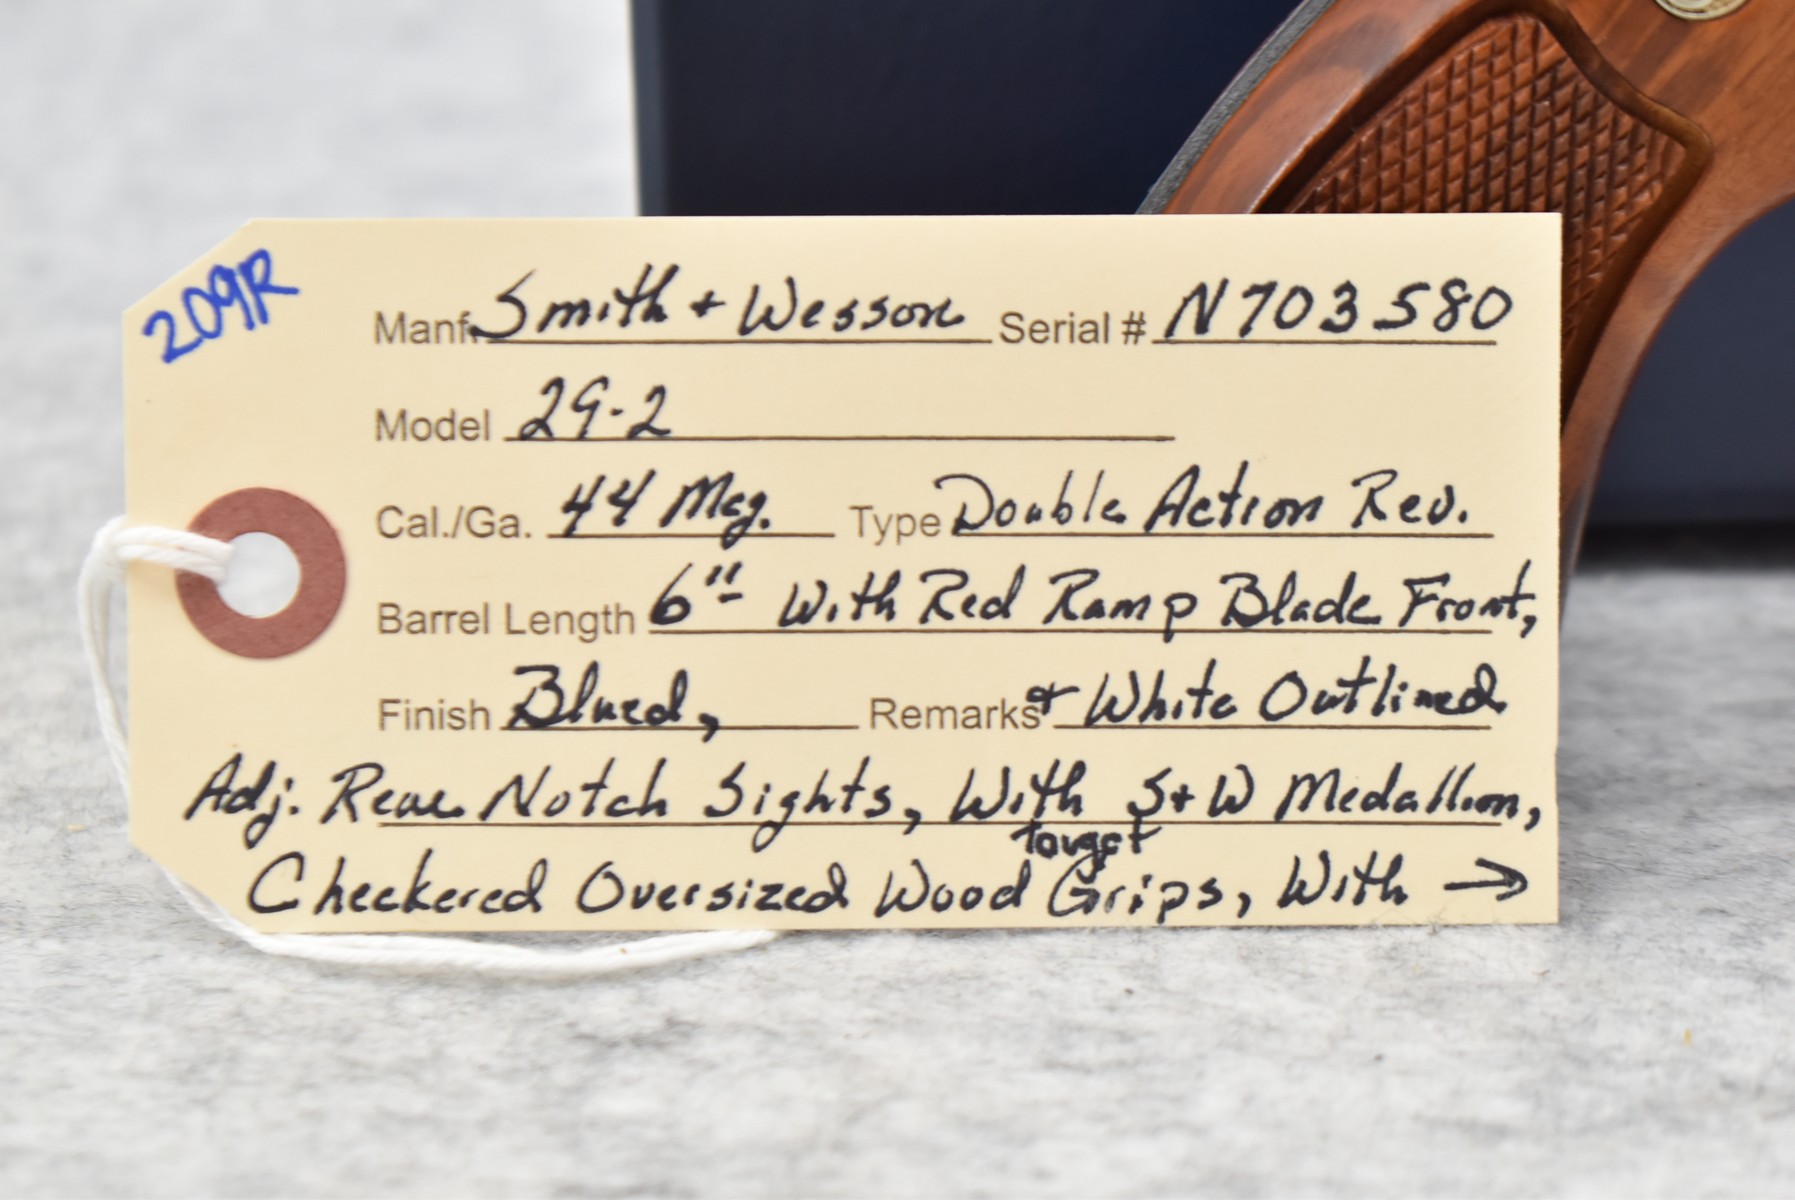 209R
Manf. Smith + Wesson Serial # N703580
Model 29-2
Cal./Ga. 44 Mag. Type Double Action Rev.
Barrel Length 6" With Red Ramp Blade Front,
Finish Blued, Remarks + White Outlined
Adj. Rear Notch Sights, With S+W Medallion,
Target
Checkered Oversized Wood Grips, With →